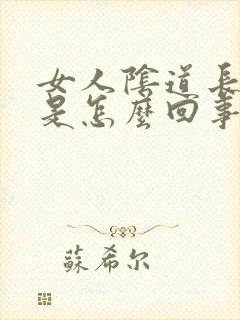 女人陰道長
是怎麼回事
蘇希尔